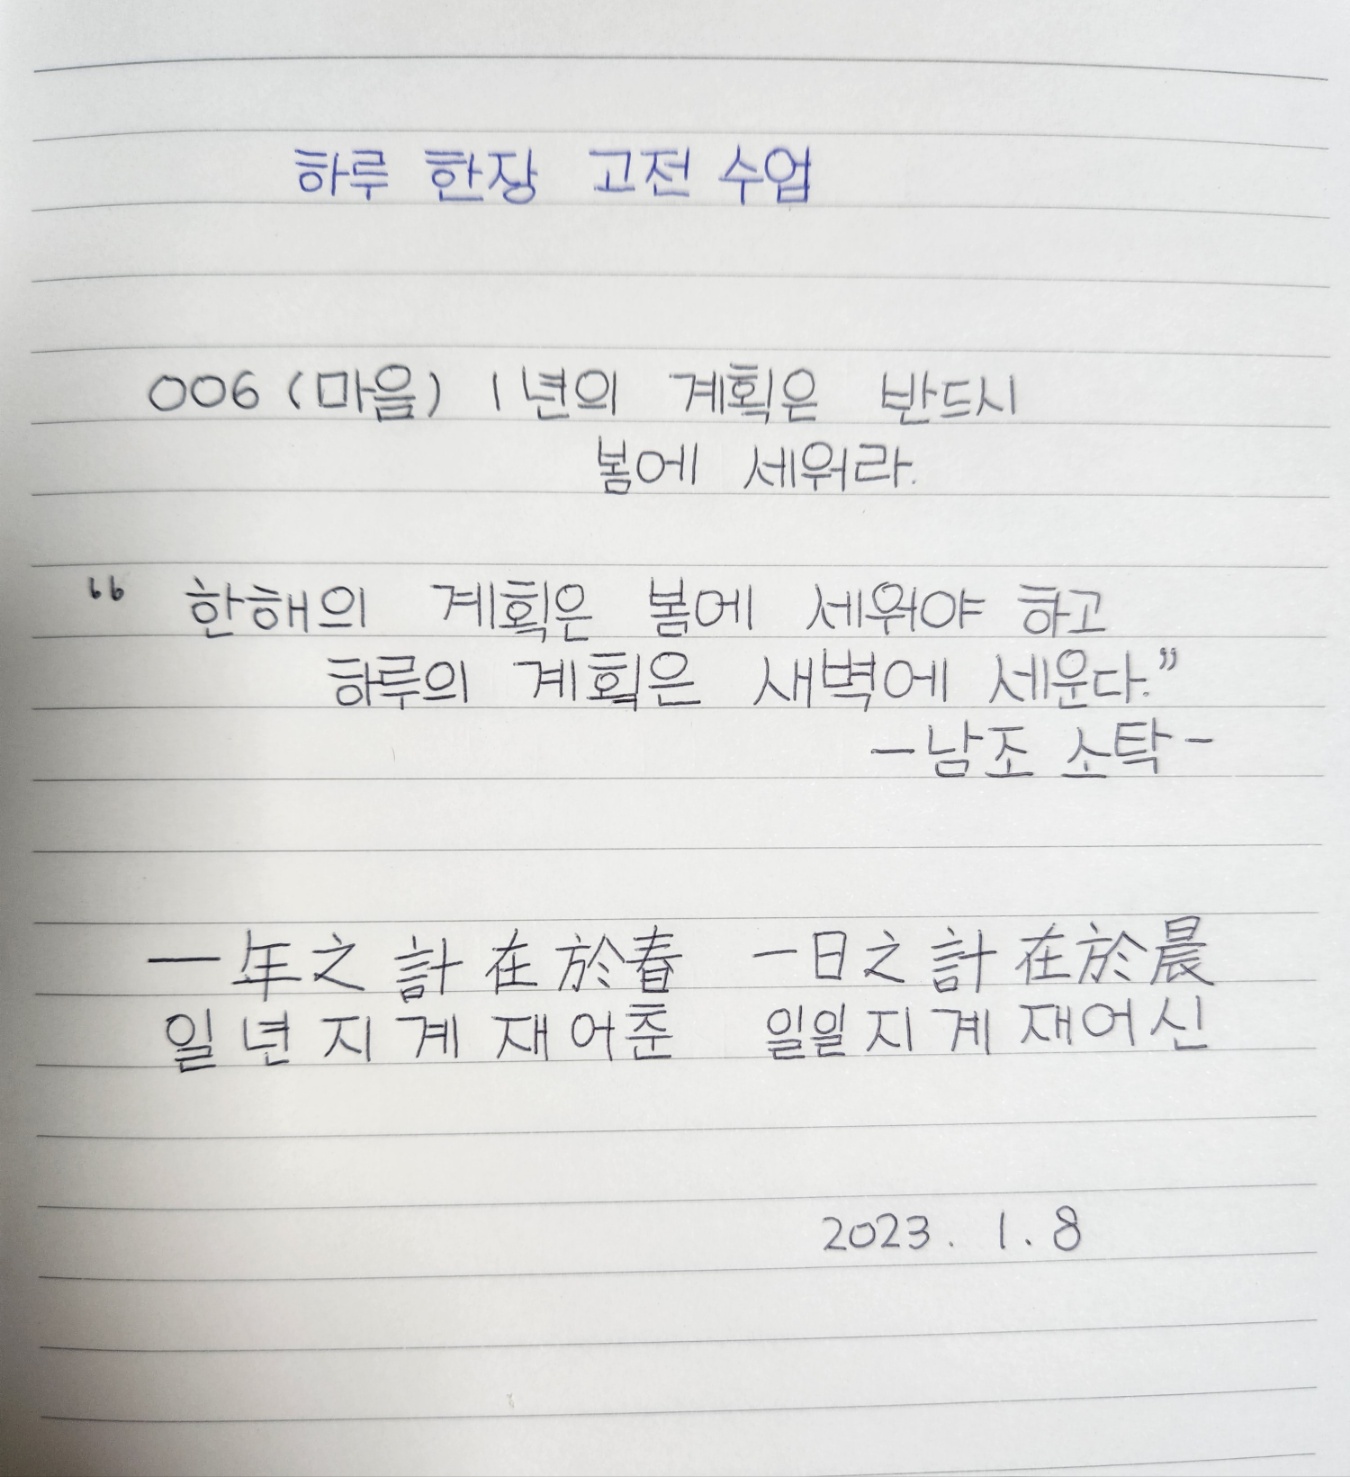 하루 한장 고전 수업
006 (마음) 1년의 계획은 반드시
봄에 세워라.
“ 한해의 계획은 봄에 세워야 하고
하루의 계획은 새벽에 세운다.”
- 남조 소탁 -
一年之計在於春 一日之計在於晨
일년지계재어춘 일일지계재어신
2023. 1. 8